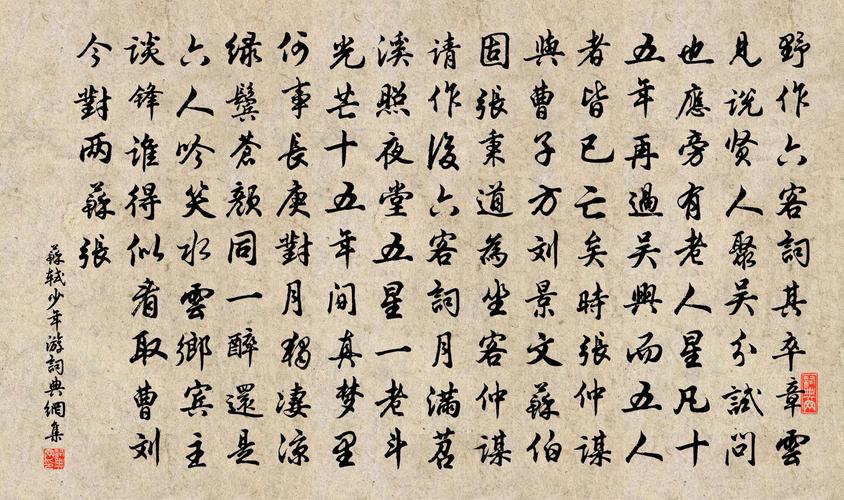 野作六客詞其卒章雲
見説贤人聚吴分試問
也應旁有老人星凡十
五年再過吴興而五人
者皆已亡矣時張仲謀
與曹子方刘景文蘇伯
固張秉道為坐客仲謀
请作後六客詞月满苕
溪照夜堂五星一老斗
光芒十五年间真梦里
何事長庚對月獨凄凉
绿鬓蒼颜同一醉還是
六人吟笑水雲鄉宾主
谈锋谁得似看取曹刘
今對两蘇張
蘇轼少年游詞典網集